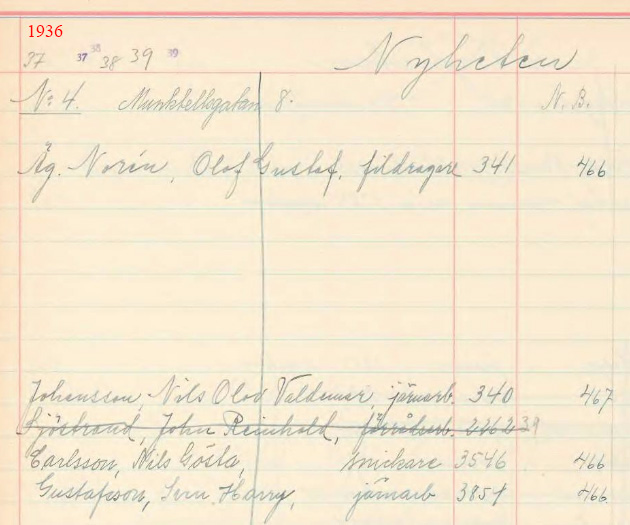 1936
37 37 38 38 39 39 Nyheten
No 4. Munktellsgatan 8. N. B.
Äg. Norén, Olof Gustaf, fildragare 341 466
Johansson, Nils Olov Valdemar, järnarb. 340 467
Sjöstrand, John Reinhold, förrådsarb. 2262 39
Carlsson, Nils Gösta, snickare 3546 466
Gustafsson, Sven Harry, järnarb 3851 466